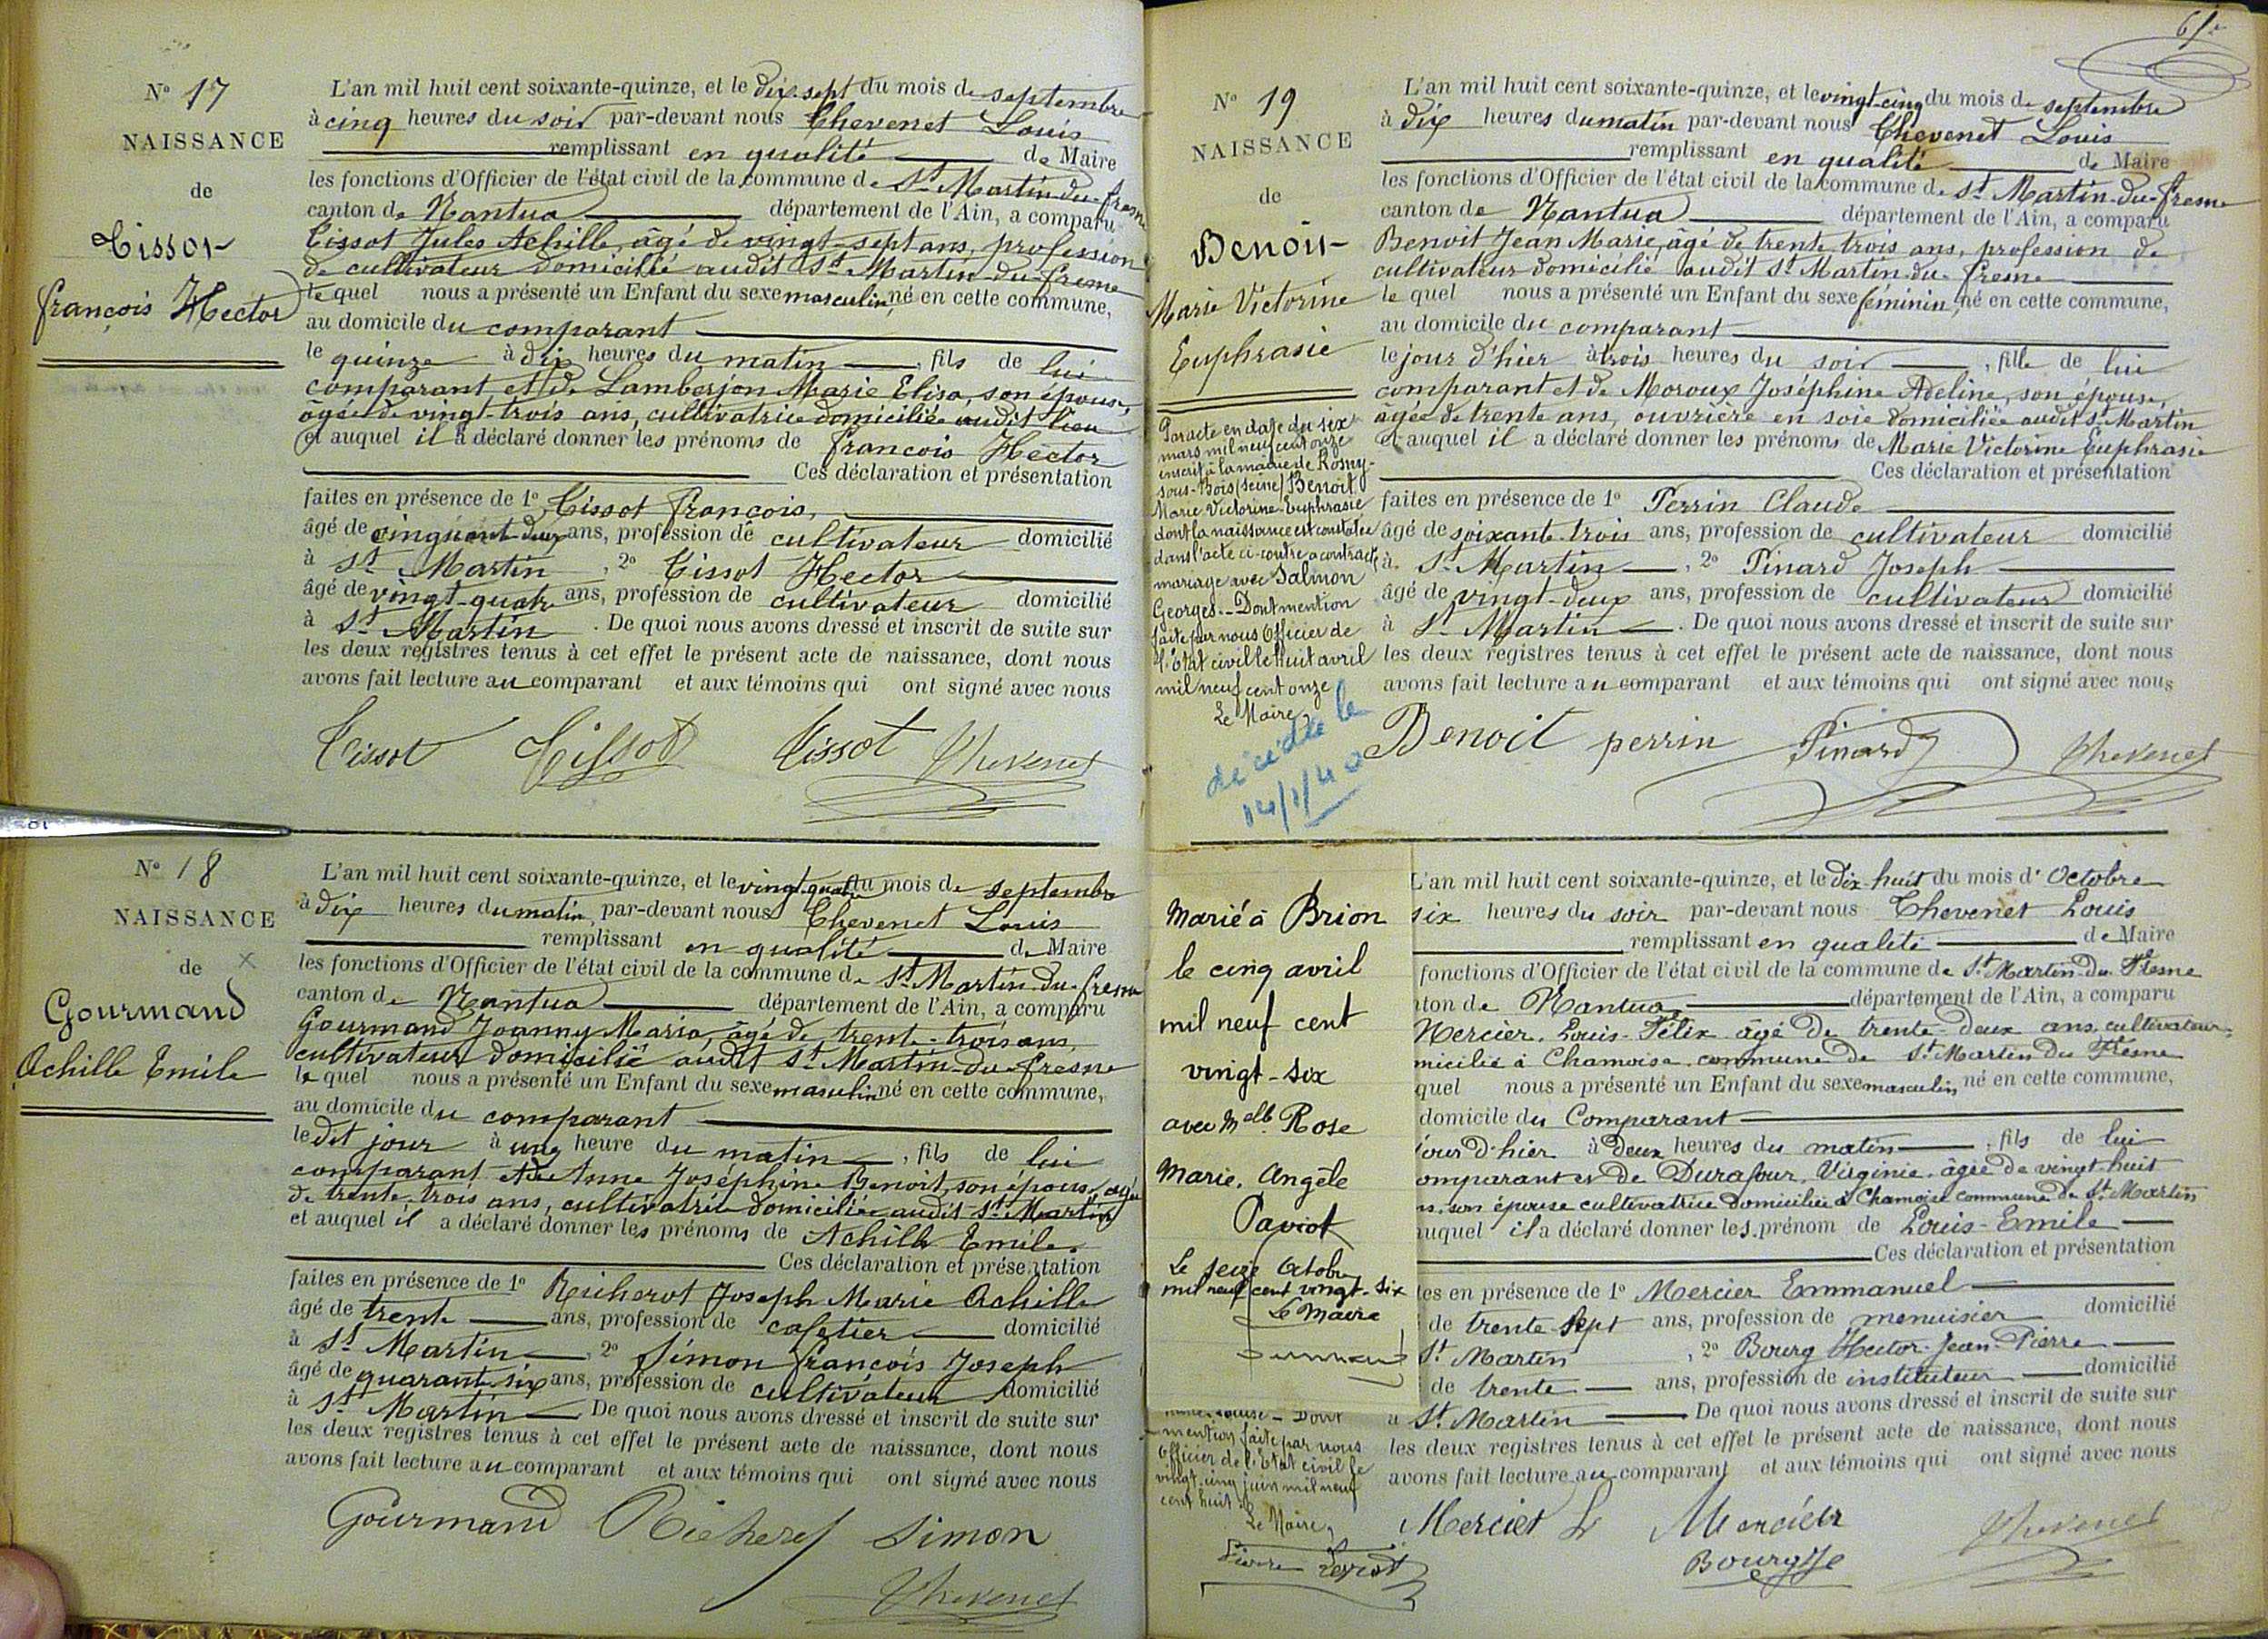 N° 17
NAISSANCE
de
Tissot
françois Hector
L'an mil huit cent soixante-quinze, et le dix-sept du mois de septembre
à cinq heures du soir par-devant nous Thevenet Louis
remplissant en qualité de Maire
les fonctions d'Officier de l'état civil de la commune de St Martin-du-fresne
canton de Nantua département de l'Ain, a comparu
Tissot Jules Achille, âgé de vingt-sept ans, profession
de cultivateur domicilié audit St Martin-du-fresne
lequel nous a présenté un Enfant du sexe masculin, né en cette commune,
au domicile du comparant
le quinze à dix heures du matin, fils de lui
comparant et de Lamberjon Marie Elisa, son épouse,
âgée de vingt-trois ans, cultivatrice domiciliée audit lieu
et auquel il a déclaré donner les prénoms de françois Hector
Ces déclaration et présentation
faites en présence de 1° Tissot françois,
âgé de cinquante-deux ans, profession de cultivateur domicilié
à St Martin, 2° Tissot Hector
âgé de vingt-quatre ans, profession de cultivateur domicilié
à St Martin. De quoi nous avons dressé et inscrit de suite sur
les deux registres tenus à cet effet le présent acte de naissance, dont nous
avons fait lecture au comparant et aux témoins qui ont signé avec nous
Tissot Tissot Tissot Thevenet
N° 18
NAISSANCE
de x
Gourmand
Achille Emile
L'an mil huit cent soixante-quinze, et le vingt-quatre du mois de septembre
à dix heures du matin par-devant nous Thevenet Louis
remplissant en qualité de Maire
les fonctions d'Officier de l'état civil de la commune de St Martin-du-fresne
canton de Nantua département de l'Ain, a comparu
Gourmand Joanny Marie, âgé de trente-trois ans,
cultivateur domicilié audit St Martin-du-fresne
lequel nous a présenté un Enfant du sexe masculin né en cette commune,
au domicile du comparant
le dit jour à une heure du matin, fils de lui
comparant et de Anne Joséphine Benoit, son épouse, âgée
de trente-trois ans, cultivatrice domiciliée audit St Martin
et auquel il a déclaré donner les prénoms de Achille Emile.
Ces déclaration et présentation
faites en présence de 1° Richerot Joseph Marie Achille
âgé de trente ans, profession de cafetier domicilié
à St Martin, 2° Simon françois Joseph
âgé de quarante-six ans, profession de cultivateur domicilié
à St Martin De quoi nous avons dressé et inscrit de suite sur
les deux registres tenus à cet effet le présent acte de naissance, dont nous
avons fait lecture au comparant et aux témoins qui ont signé avec nous
Gourmand Richerot Simon
Thevenet
N° 19
NAISSANCE
de
Benoit
Marie Victorine
Euphrasie
Par acte en date du six
mars mil neuf cent onze
inscrit à la mairie de Rosny-
sous-Bois (Seine) Benoit
Marie Victorine Euphrasie
dont la naissance est constatée
dans l'acte ci-contre a contracté
mariage avec Salmon
Georges.- Dont mention
faite par nous Officier de
l'Etat civil le huit avril
mil neuf cent onze
Le Maire,
décédée le
14/1/40
L'an mil huit cent soixante-quinze, et le vingt-cinq du mois de septembre
à dix heures du matin par-devant nous Thevenet Louis
remplissant en qualité de Maire
les fonctions d'Officier de l'état civil de la commune de St Martin-du-fresne
canton de Nantua département de l'Ain, a comparu
Benoit Jean Marie, âgé de trente-trois ans, profession de
cultivateur domicilié audit St Martin-du-fresne
lequel nous a présenté un Enfant du sexe féminin, né en cette commune,
au domicile du comparant
le jour d'hier à trois heures du soir, fille de lui
comparant et de Moroux Joséphine Adeline, son épouse,
âgée de trente ans, ouvrière en soie domiciliée audit St Martin
et auquel il a déclaré donner les prénoms de Marie Victorine Euphrasie
Ces déclaration et présentation
faites en présence de 1° Perrin Claude
âgé de soixante-trois ans, profession de cultivateur domicilié
à St Martin, 2° Pinard Joseph
âgé de vingt-deux ans, profession de cultivateur domicilié
à St Martin. De quoi nous avons dressé et inscrit de suite sur
les deux registres tenus à cet effet le présent acte de naissance, dont nous
avons fait lecture au comparant et aux témoins qui ont signé avec nous
Benoit perrin Pinard Thevenet
Marié à Brion
le cinq avril
mil neuf cent
vingt-six
avec Melle Rose
Marie, Angèle
Paviot
Le seize Octobre
mil neuf cent vingt-six
Le Maire
Dont
mention faite par nous
Officier de l'Etat civil le
vingt-cinq juin mil neuf
cent huit.
Le Maire,
L'an mil huit cent soixante-quinze, et le dix-huit du mois d'Octobre
six heures du soir par-devant nous Thevenet Louis
remplissant en qualité de Maire
fonctions d'Officier de l'état civil de la commune de St Martin-du-Fresne
nton de Nantua département de l'Ain, a comparu
Mercier, Louis-Félix âgé de trente-deux ans, cultivateur,
micilié à Chamoise commune de St Martin du Fresne
quel nous a présenté un Enfant du sexe masculin né en cette commune,
domicile du Comparant
jour d'hier à deux heures du matin, fils de lui
omparant et de Durafour, Virginie, âgée de vingt-huit
ns, son épouse cultivatrice domiciliée à Chamoise commune de St Martin
auquel il a déclaré donner les prénom de Louis-Emile
Ces déclaration et présentation
tes en présence de 1° Mercier Emmanuel
de trente-sept ans, profession de menuisier domicilié
St Martin, 2° Bourg Hector-Jean-Pierre
de trente ans, profession de instituteur domicilié
à St Martin De quoi nous avons dressé et inscrit de suite sur
les deux registres tenus à cet effet le présent acte de naissance, dont nous
avons fait lecture au comparant et aux témoins qui ont signé avec nous
Mercier L Mercier Thevenet
Bourg